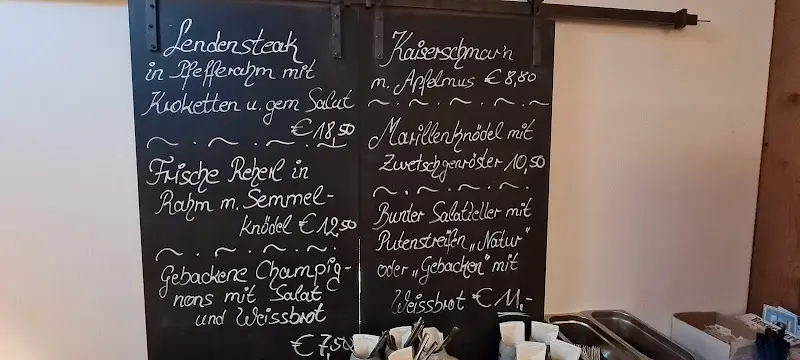 Lendensteak
in Pfefferrahm mit
Kroketten u. gem Salat
€ 18,50
Frische Reherl in
Rahm m. Semmel-
knödel € 12,50
Gebackene Champig-
nons mit Salat
und Weissbrot
€ 7,50
Kaiserschmarn
m. Apfelmus € 8,80
Marillenknödel mit
Zwetschgenröster 10,50
Bunter Salatteller mit
Putenstreifen „Natur"
oder „Gebacken" mit
Weissbrot € 11,-